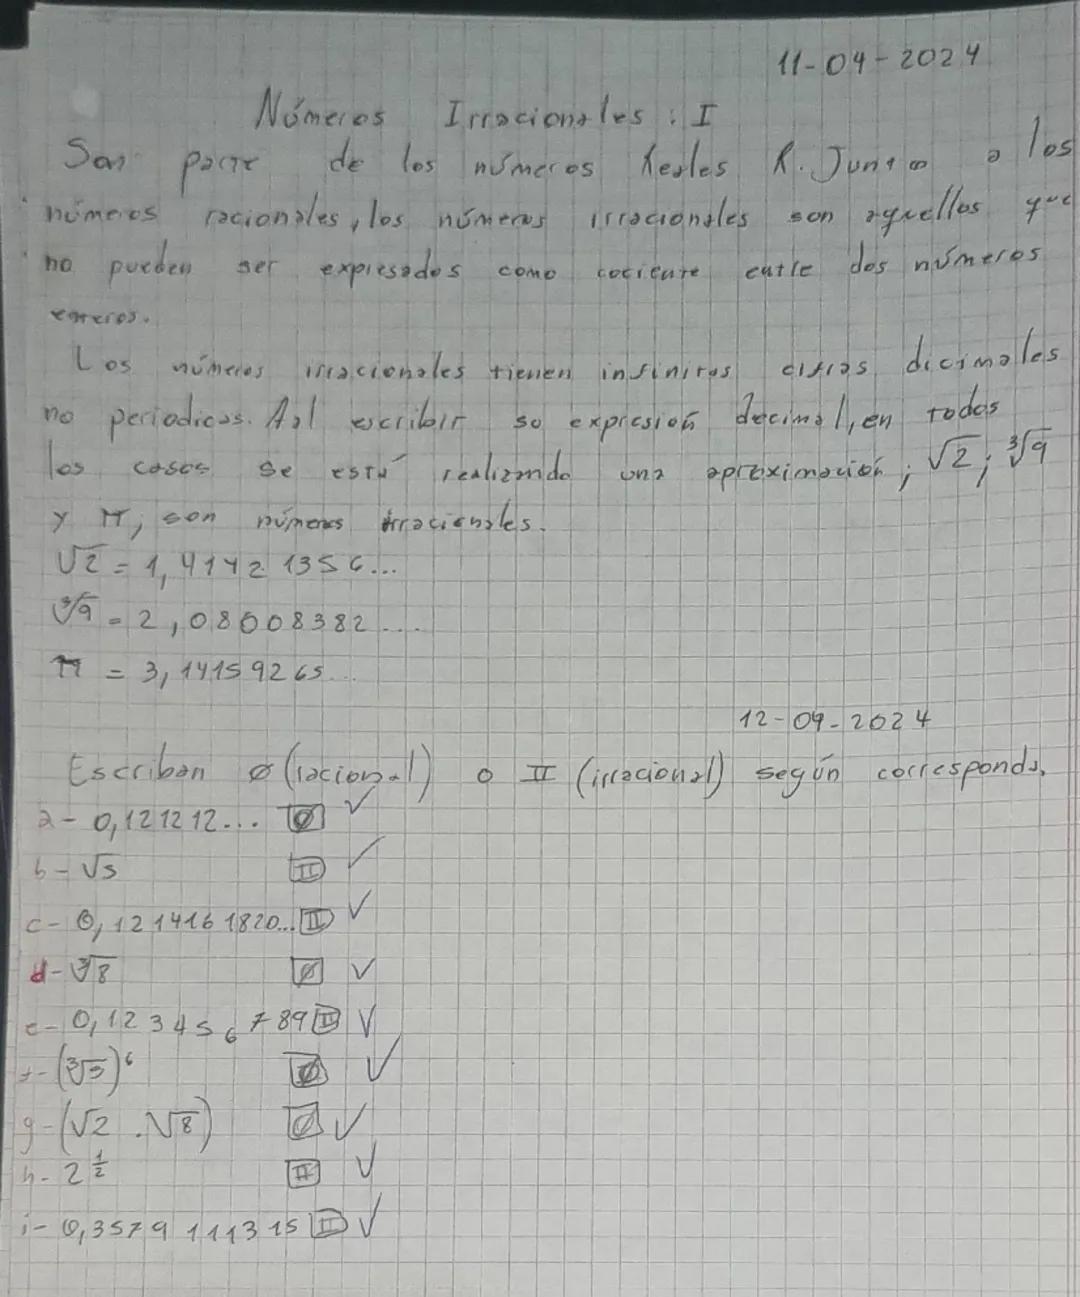 11-04-2024
Números Irracionales : I
Son parte de los números Reales R. Junto a los
números racionales, los números irracionales son aquellos que
no pueden ser expresados como cociente entre dos números
enteros.
Los números irracionales tienen infinitas cifras dicimales
no periodicas. Aal escribir so expresión decimal, en todos
los casos se está realizando una aproximación; √2; ∛9
y π; son números irracionales.
√2 = 1,41421356...
∛9 = 2,08008382....
π = 3,14159265...
12-04-2024
Escriban Ø (racional) o II (irracional) según corresponda.
a- 0,121212... Ø ✓
b- √5 II ✓
c- 0,1214161820... II ✓
d- ∛8 Ø ✓
e- 0,123456789 II ✓
f- (∛5)⁶ Ø ✓
g- (√2 . √8) Ø ✓
h- 2^½ II ✓
i- 0,3579111315 II ✓